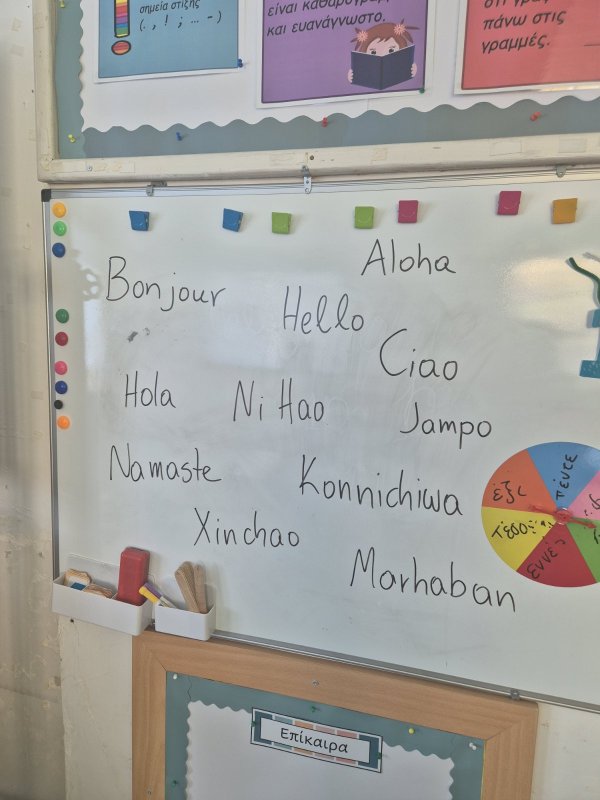 σημεία στίξης
(. , ! ; ... - )
και ευανάγνωστο.
πάνω στις
γραμμές.
Aloha
Bonjour
Hello
Ciao
Hola
Ni Hao
Jampo
Namaste
Konnichiwa
Xinchao
Marhaban
έξι
πέντε
εννέ
Επίκαιρα